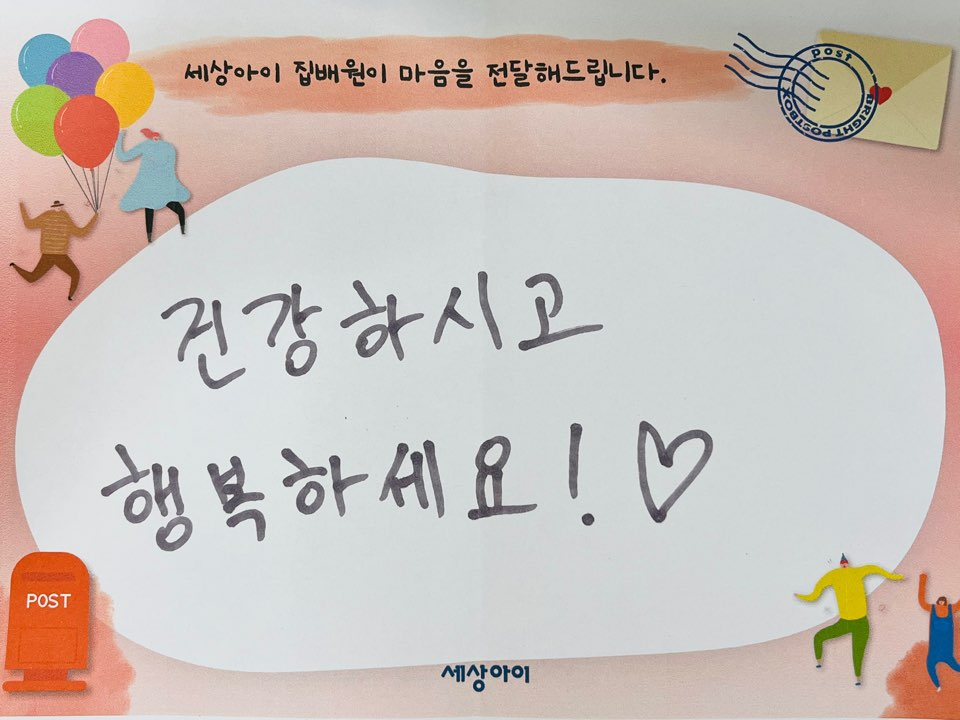 세상아이 집배원이 마음을 전달해드립니다.
post
BRIGHT POSTBOX
건강하시고
행복하세요!♡
POST
세상아이